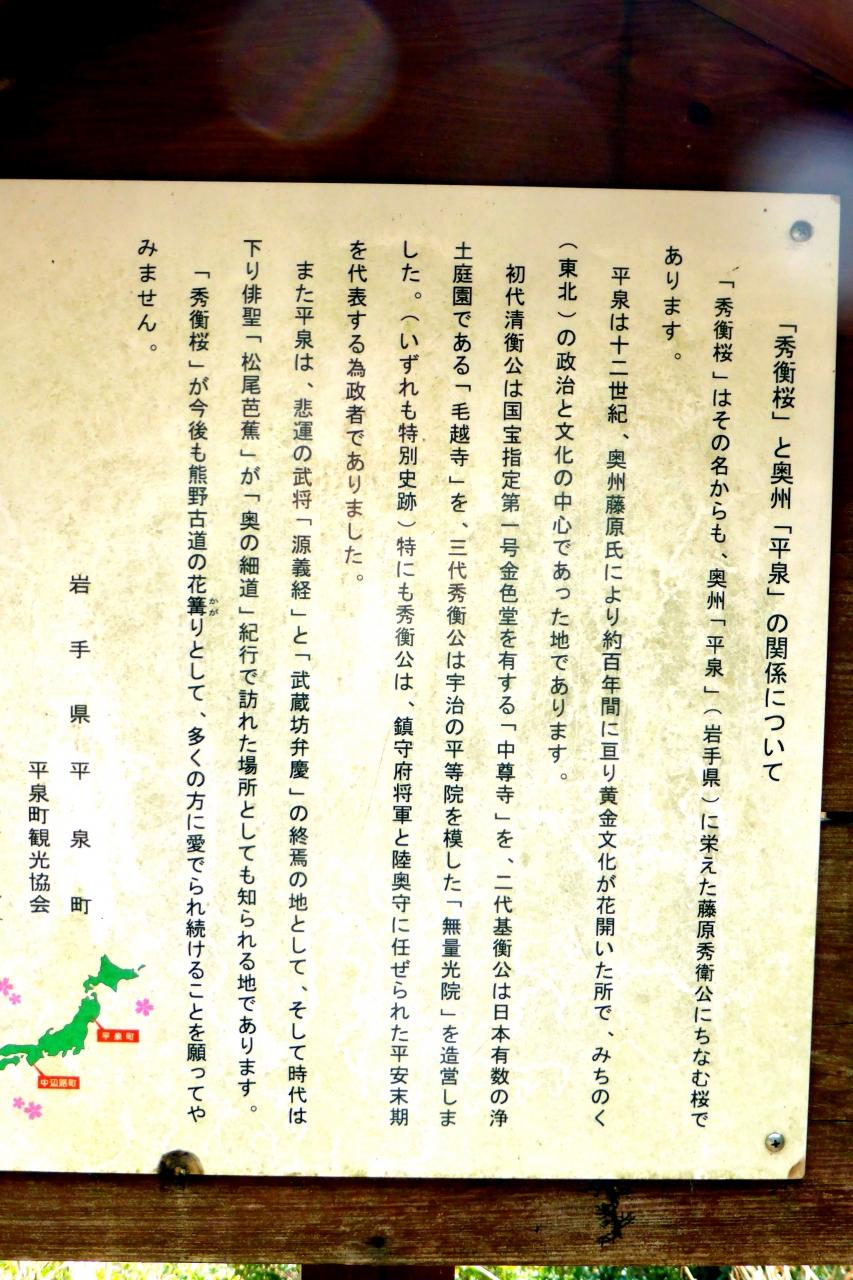 「秀衡桜」と奥州「平泉」の関係について
「秀衡桜」はその名からも、奥州「平泉」(岩手県)に栄えた藤原秀衛公にちなむ桜で
あります。
平泉は十二世紀、奥州藤原氏により約百年間に亘り黄金文化が花開いた所で、みちのく
(東北)の政治と文化の中心であった地であります。
初代清衡公は国宝指定第一号金色堂を有する「中尊寺」を、二代基衡公は日本有数の浄
土庭園である「毛越寺」を、三代秀衡公は宇治の平等院を模した「無量光院」を造営しま
した。(いずれも特別史跡)特にも秀衡公は、鎮守府将軍と陸奥守に任ぜられた平安末期
を代表する為政者でありました。
また平泉は、悲運の武将「源義経」と「武蔵坊弁慶」の終焉の地として、そして時代は
下り俳聖「松尾芭蕉」が「奥の細道」紀行で訪れた場所としても知られる地であります。
「秀衡桜」が今後も熊野古道の花篝りとして、多くの方に愛でられ続けることを願ってや
かが
みません。
岩手県平泉町
平泉町観光協会
平泉町
中辺路町